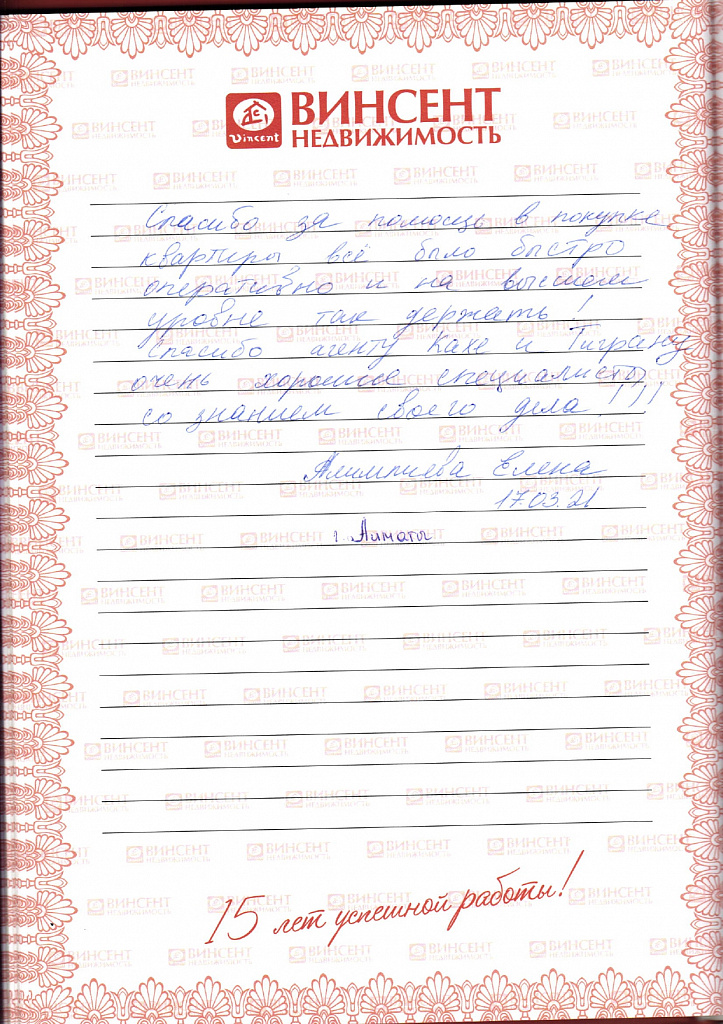 Vincent
ВИНСЕНТ
НЕДВИЖИМОСТЬ
Спасибо за помощь в покупке
квартиры, всё было быстро
оперативно и на высшем
уровне так держать!
Спасибо агенту Кахе и Тиграну
очень хорошие специалисты
со знанием своего дела!!!
Алимпиева Елена
17.03.21
г. Алматы
15 лет успешной работы!